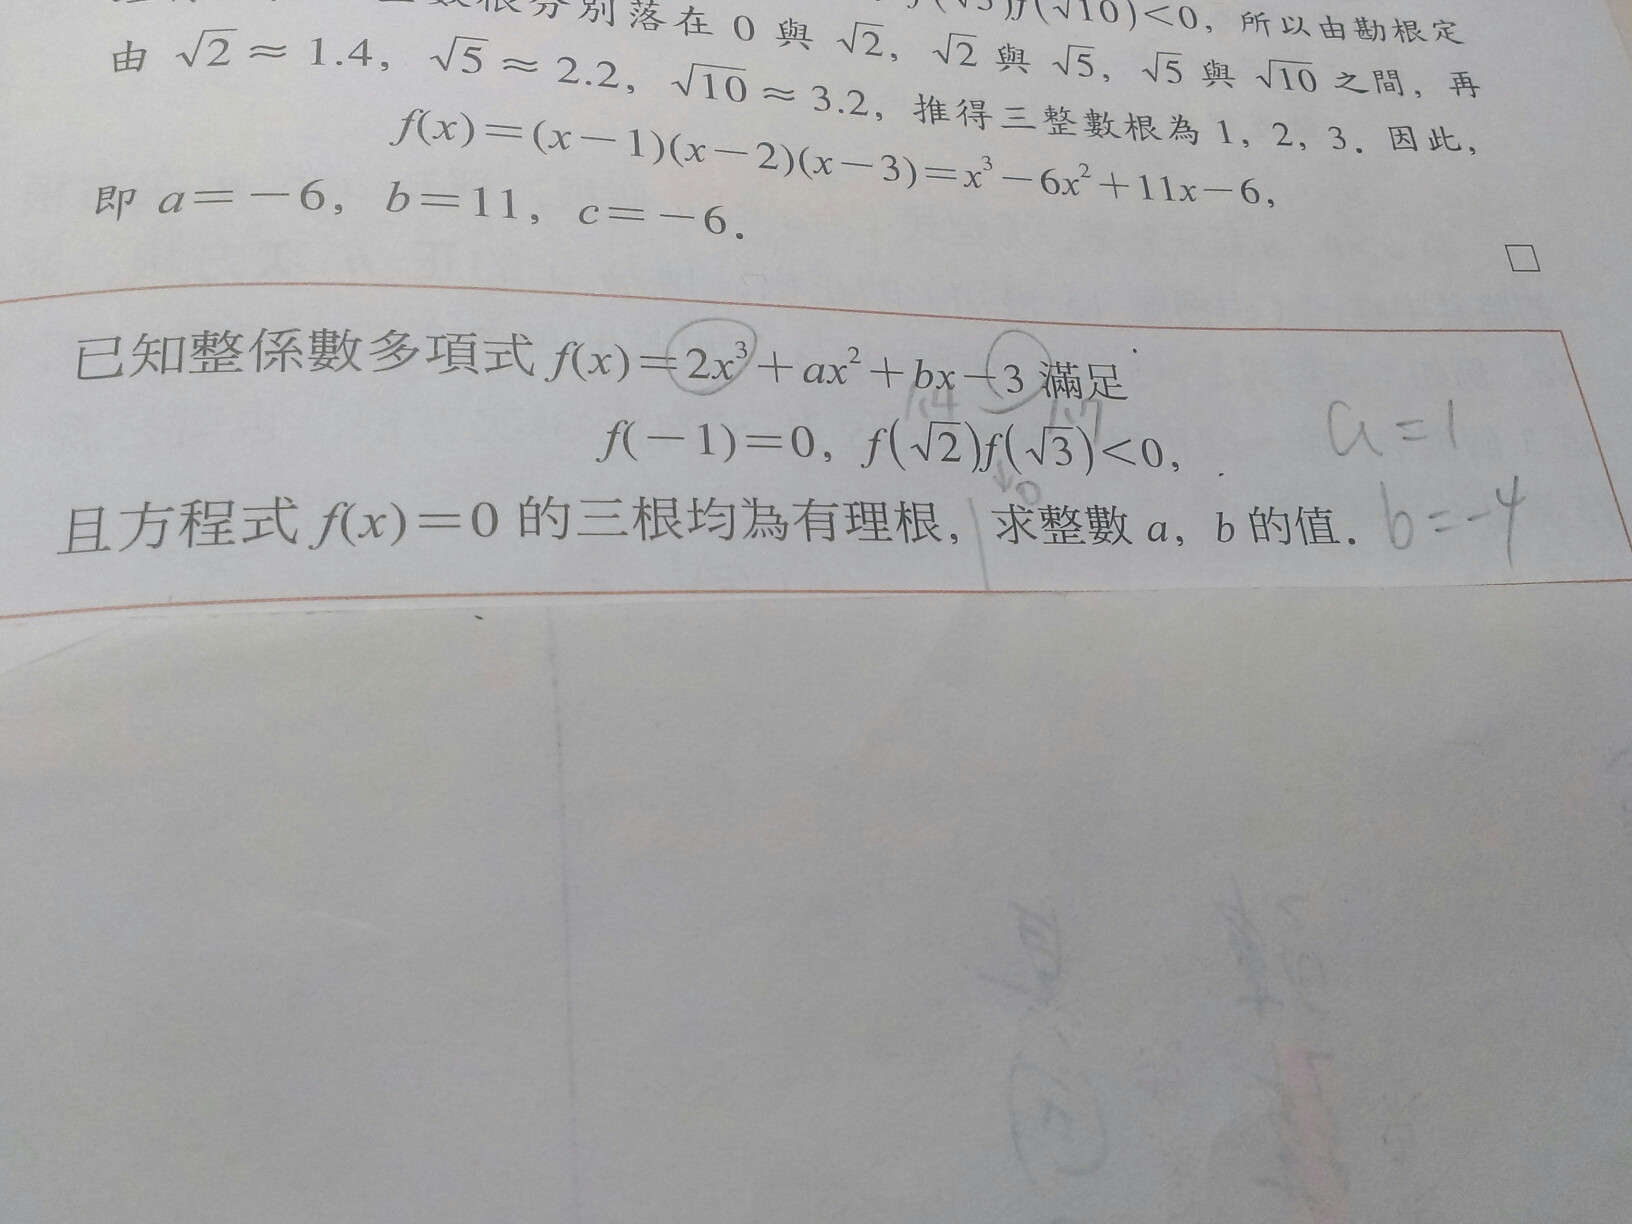 數根分別落在 0 與 √2, √2 與 √5, √5 與 √10 之間, 再
f(√10)<0, 所以由勘根定
由 √2 ≈ 1.4, √5 ≈ 2.2, √10 ≈ 3.2, 推得三整數根為 1, 2, 3. 因此,
f(x)=(x−1)(x−2)(x−3)=x³−6x²+11x−6,
即 a=−6, b=11, c=−6.
已知整係數多項式 f(x)=2x³+ax²+bx−3 滿足
1.4 1.7
f(−1)=0, f(√2)f(√3)<0,
a=1
0
且方程式 f(x)=0 的三根均為有理根, 求整數 a, b 的值.
b=-4